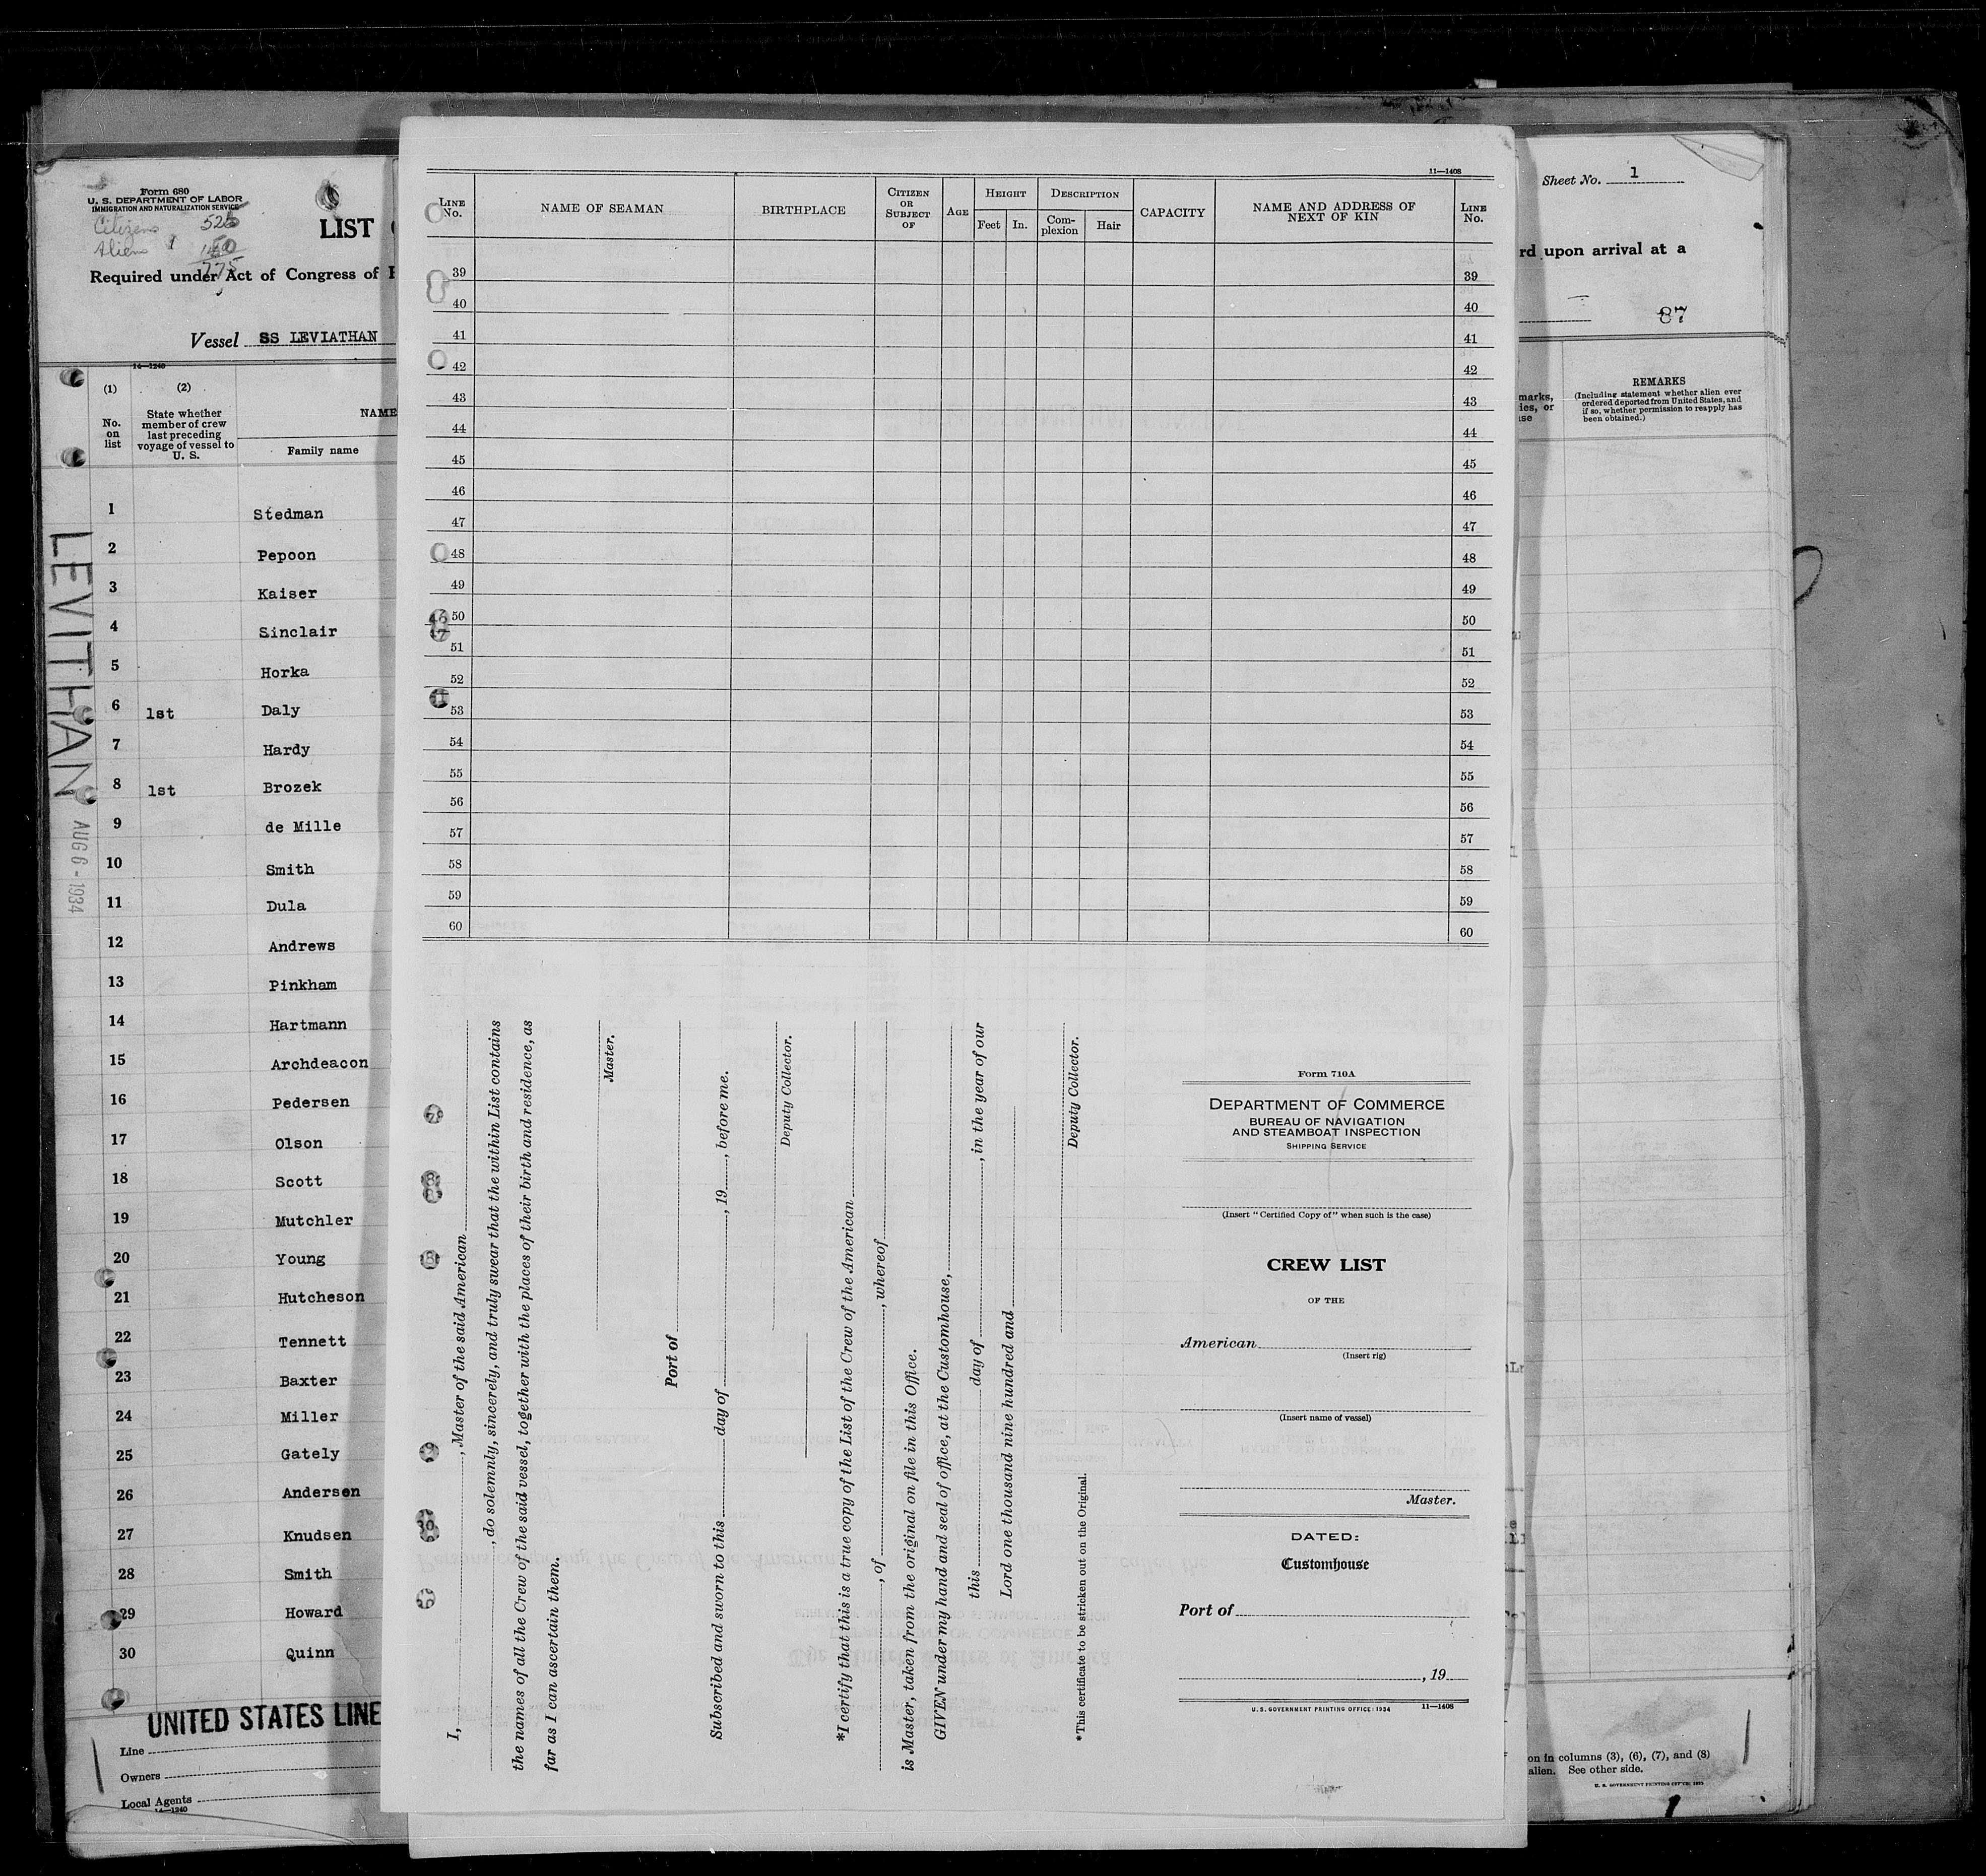 Form 680
U. S. DEPARTMENT OF LABOR
IMMIGRATION AND NATURALIZATION SERVICE
Citizens 525
Aliens
775
LIST
Required under Act of Congress of
Vessel SS LEVIATHAN
14—1240
(1) (2)
No. on list
State whether member of crew last preceding voyage of vessel to U. S.
NAME
Family name
1 Stedman
2 Pepoon
3 Kaiser
4 Sinclair
5 Horka
6 1st Daly
7 Hardy
8 1st Brozek
9 de Mille
10 Smith
11 Dula
12 Andrews
13 Pinkham
14 Hartmann
15 Archdeacon
16 Pedersen
17 Olson
18 Scott
19 Mutchler
20 Young
21 Hutcheson
22 Tennett
23 Baxter
24 Miller
25 Gately
26 Andersen
27 Knudsen
28 Smith
29 Howard
30 Quinn
LEVITHAN
AUG 6 - 1934
UNITED STATES LINE
Line
Owners
Local Agents
14—1240
11—1408
LINE No.
NAME OF SEAMAN
BIRTHPLACE
CITIZEN OR SUBJECT OF
AGE
HEIGHT
Feet In.
DESCRIPTION
Complexion Hair
CAPACITY
NAME AND ADDRESS OF NEXT OF KIN
LINE No.
39 39
40 40
41 41
42 42
43 43
44 44
45 45
46 46
47 47
48 48
49 49
50 50
51 51
52 52
53 53
54 54
55 55
56 56
57 57
58 58
59 59
60 60
I, , Master of the said American
, do solemnly, sincerely, and truly swear that the within List contains
the names of all the Crew of the said vessel, together with the places of their birth and residence, as
far as I can ascertain them.
Master.
Port of
Subscribed and sworn to this day of , 19 , before me.
Deputy Collector.
*I certify that this is a true copy of the List of the Crew of the American
, of , whereof
is Master, taken from the original on file in this Office.
GIVEN under my hand and seal of office, at the Customhouse,
this day of , in the year of our
Lord one thousand nine hundred and
Deputy Collector.
*This certificate to be stricken out on the Original.
Form 710A
DEPARTMENT OF COMMERCE
BUREAU OF NAVIGATION
AND STEAMBOAT INSPECTION
SHIPPING SERVICE
(Insert "Certified Copy of" when such is the case)
CREW LIST
OF THE
American
(Insert rig)
(Insert name of vessel)
Master.
DATED:
Customhouse
Port of
, 19
U. S. GOVERNMENT PRINTING OFFICE: 1934 11—1408
Sheet No. 1
rd upon arrival at a
87
marks,
ies, or
se
REMARKS
(Including statement whether alien ever
ordered deported from United States, and
if so, whether permission to reapply has
been obtained.)
on in columns (3), (6), (7), and (8)
alien. See other side.
U. S. GOVERNMENT PRINTING OFFICE: 1933